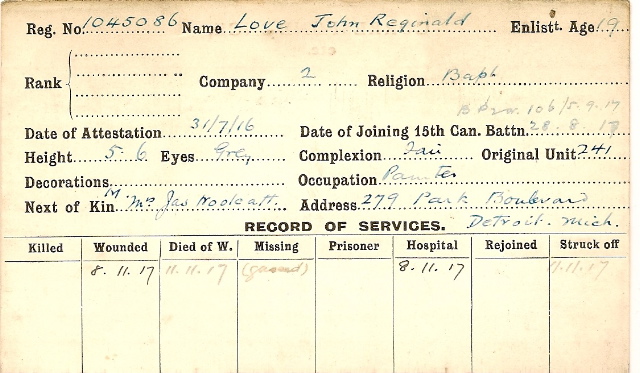 Reg. No. 1045086 Name Love John Reginald Enlistt. Age 19
Rank Company 2 Religion Bapt
106/5.9.17
Date of Attestation 31/7/16 Date of Joining 15th Can. Battn. 28.8.17
Height 5-6 Eyes Grey Complexion Fair Original Unit 241
Decorations Occupation Painter
Next of Kin M Mrs Jas Woolcatt Address 279 Park Boulevard
RECORD OF SERVICES. Detroit. Mich.
Killed Wounded Died of W. Missing Prisoner Hospital Rejoined Struck off
8.11.17 11.11.17 (gassed) 8.11.17 11.11.17